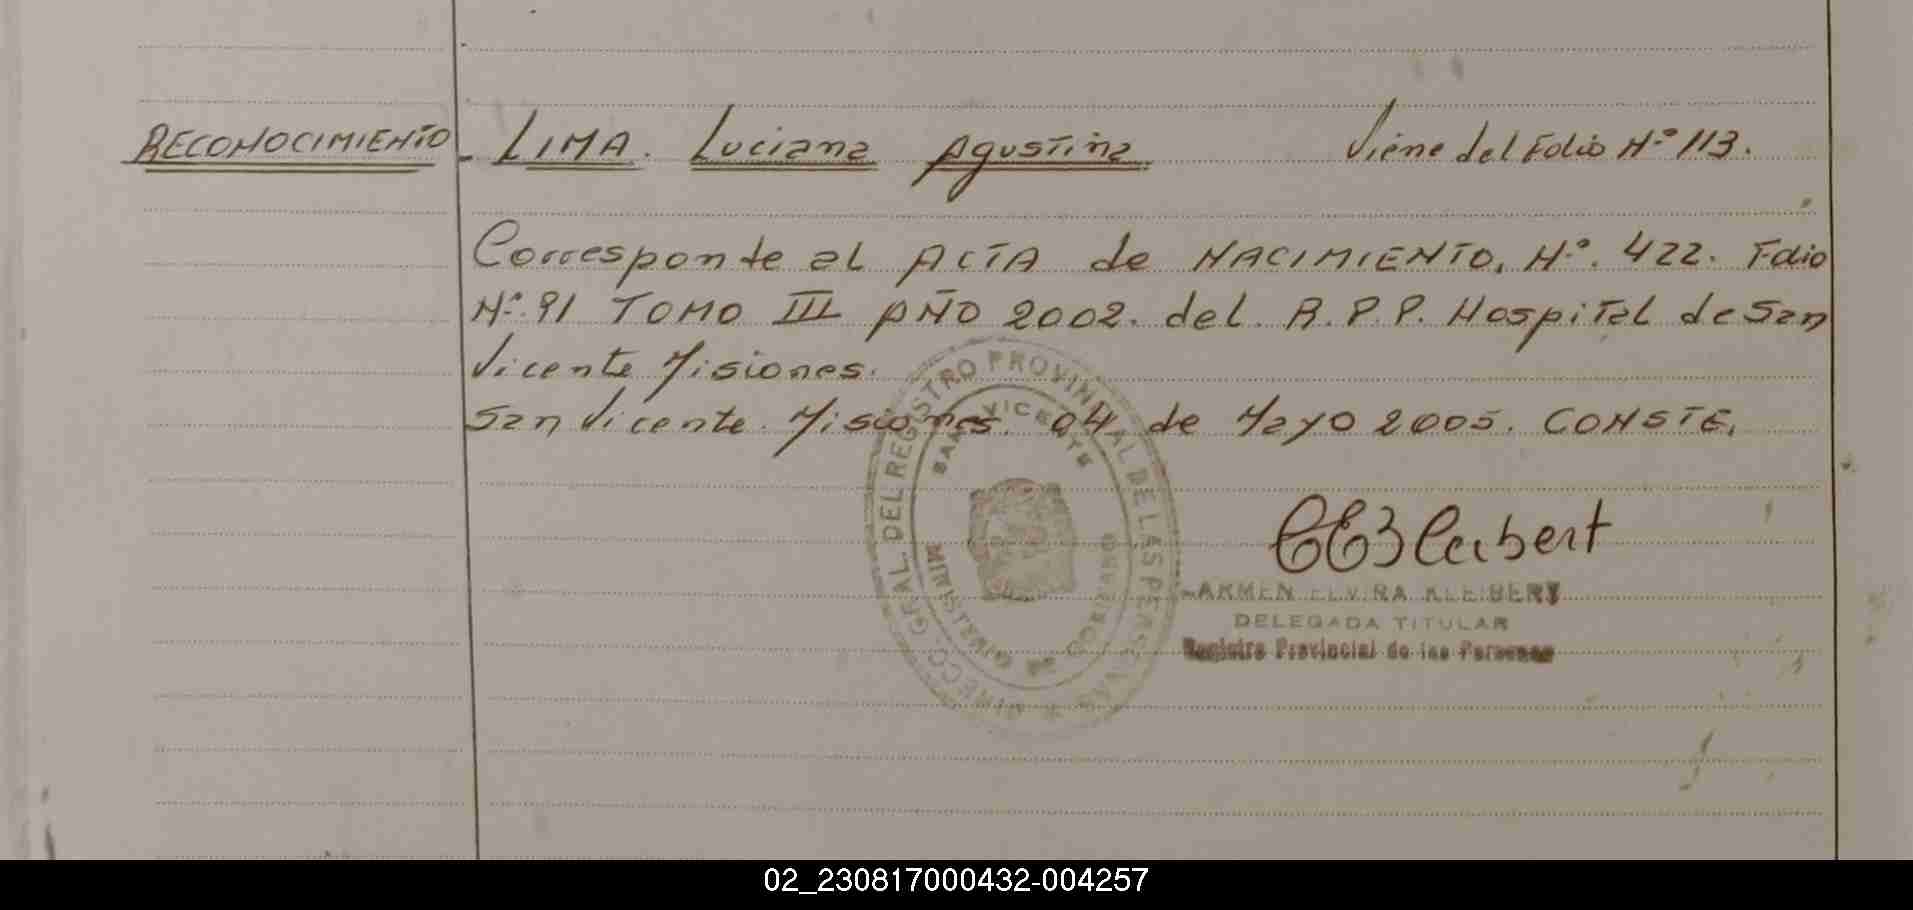 RECONOCIMIENTO - LIMA. Luciana Agustina Viene del Folio Nº 113.
Corresponde al ACTA de NACIMIENTO. Nº. 422. Folio
Nº. 91 TOMO III AÑO 2002. del. R.P.P. Hospital de San
Vicente Misiones.
San Vicente. Misiones. 04 de Mayo 2005. CONSTE.
DIRECC. GRAL. DEL REGISTRO PROVINCIAL DE LAS PERSONAS *
SAN VICENTE
MINISTERIO DE GOBIERNO
CEKleibert
CARMEN ELVIRA KLEIBERT
DELEGADA TITULAR
Registro Provincial de las Personas
02_230817000432-004257